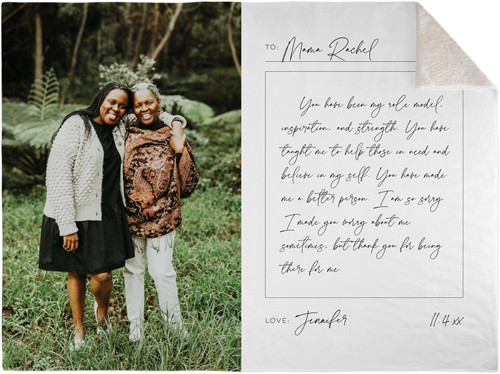 TO: Mama Rachel
You have been my role model,
inspiration, and strength. You have
taught me to help those in need and
believe in my self. You have made
me a better person. I am so sorry
I made you worry about me
sometimes, but thank you for being
there for me.
LOVE: Jennifer 11.4.xx